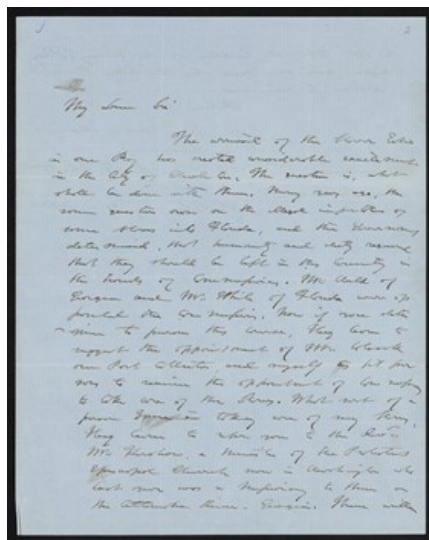 2
My Dear Sir
The arrival of the Slaver Echo
in our Bay has created considerable excitement
in the City of Charleston. The question is, what
shall be done with them. Many years ago, the
same question arose on the illegal importation of
some slaves into Florida, and the Government
determined, that humanity and duty required
that they should be left in this Country in
the hands of Commissioners. Mr
Georgia and Mr. White of Florida were ap
pointed the Commissioners. Now if you deter
mine to pursue this course, I beg leave to
suggest the appointment of Wm Colcock
our Port Collector, and myself as fit per
sons to receive the appointment of Commissioners
to take care of the Boys. What sort of a
person I am in taking care of my
I beg leave to refer you to the Rev.
Mr. a Minister of the Protestant
Episcopal Church now in Washington who
last year was a Missionary to them on
the Altamaha River. Georgia. There with